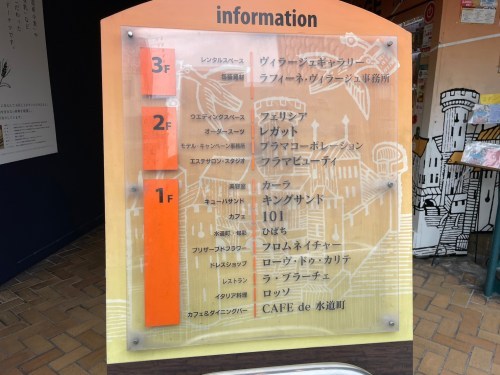 information
3F
レンタルスペース ヴィラージュギャラリー
ラフィーネ・ヴィラージュ事務所
2F
ウエディングスペース フェリシア
オーダースーツ レガット
モデル・キャンペーン事務所 プラマコーポレーション
エステサロン・スタジオ プラマビューティ
1F
美容室 カーラ
キューバサンド キングサンド
カフェ 101
水道町 ひばち
プリザーブドフラワー フロムネイチャー
ドレスショップ ローヴ・ドゥ・カリテ
レストラン ラ・ブラーチェ
イタリア料理 ロッソ
カフェ&ダイニングバー CAFE de 水道町